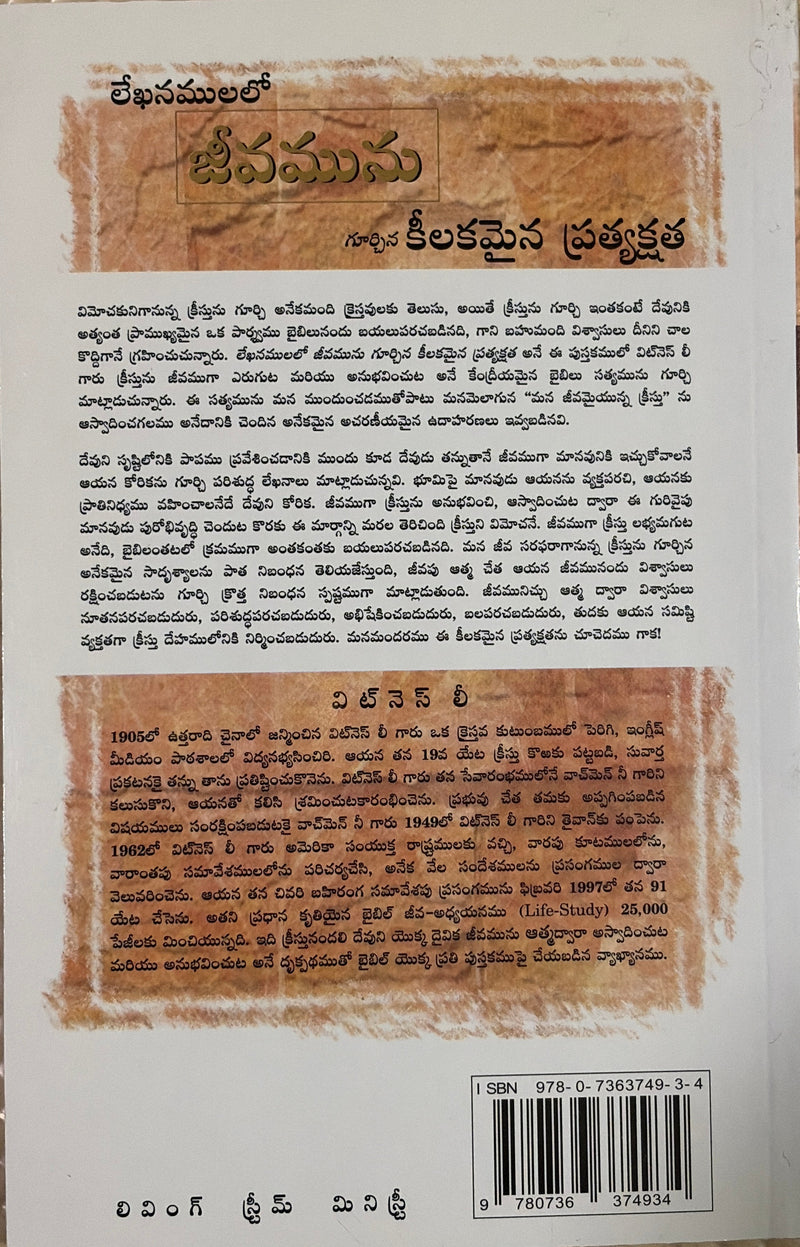 లేఖనములలో
జీవమును
గూర్చిన కీలకమైన ప్రత్యక్షత
విమోచకునిగానున్న క్రీస్తును గూర్చి అనేకమంది క్రైస్తవులకు తెలుసు, అయితే క్రీస్తును గూర్చి ఇంతకంటే దేవునికి
అత్యంత ప్రాముఖ్యమైన ఒక పార్శ్వము బైబిలునందు బయలుపరచబడినది, గాని బహుమంది విశ్వాసులు దీనిని చాల
కొద్దిగానే గ్రహించుచున్నారు. లేఖనములలో జీవమును గూర్చిన కీలకమైన ప్రత్యక్షత అనే ఈ పుస్తకములో విట్‌నెస్ లీ
గారు క్రీస్తును జీవముగా ఎరుగుట మరియు అనుభవించుట అనే కేంద్రీయమైన బైబిలు సత్యమును గూర్చి
మాట్లాడుచున్నారు. ఈ సత్యమును మన ముందుంచడముతోపాటు మనమెలాగున "మన జీవమైయున్న క్రీస్తు" ను
ఆస్వాదించగలము అనేదానికి చెందిన అనేకమైన అచరణీయమైన ఉదాహరణలు ఇవ్వబడినవి.
దేవుని సృష్టిలోనికి పాపము ప్రవేశించడానికి ముందు కూడ దేవుడు తన్నుతానే జీవముగా మానవునికి ఇచ్చుకోవాలనే
ఆయన కోరికను గూర్చి పరిశుద్ధ లేఖనాలు మాట్లాడుచున్నవి. భూమిపై మానవుడు ఆయనను వ్యక్తపరచి, ఆయనకు
ప్రాతినిధ్యము వహించాలనేదే దేవుని కోరిక. జీవముగా క్రీస్తును అనుభవించి, ఆస్వాదించుట ద్వారా ఈ గురివైపు
మానవుడు పురోభివృద్ధి చెందుట కొరకు ఈ మార్గాన్ని మరల తెరిచింది క్రీస్తుని విమోచనే. జీవముగా క్రీస్తు లభ్యమగుట
అనేది, బైబిలంతటలో క్రమముగా అంతకంతకు బయలుపరచబడినది. మన జీవ సరఫరాగానున్న క్రీస్తును గూర్చిన
అనేకమైన సాదృశ్యాలను పాత నిబంధన తెలియజేస్తుంది, జీవపు ఆత్మ చేత ఆయన జీవమునందు విశ్వాసులు
రక్షించబడుటను గూర్చి క్రొత్త నిబంధన స్పష్టముగా మాట్లాడుతుంది. జీవమునిచ్చు ఆత్మ ద్వారా విశ్వాసులు
నూతనపరచబడుదురు, పరిశుద్ధపరచబడుదురు, అభిషేకించబడుదురు, బలపరచబడుదురు, తుదకు ఆయన సమిష్టి
వ్యక్తతగా క్రీస్తు దేహములోనికి నిర్మించబడుదురు. మనమందరము ఈ కీలకమైన ప్రత్యక్షతను చూచెదము గాక!
విట్‌నెస్ లీ
1905లో ఉత్తరాది చైనాలో జన్మించిన విట్‌నెస్ లీ గారు ఒక క్రైస్తవ కుటుంబములో పెరిగి, ఇంగ్లీష్
మీడియం పాఠశాలలో విద్యనభ్యసించిరి. ఆయన తన 19వ యేట క్రీస్తు కొఱకు పట్టబడి, సువార్త
ప్రకటనకై తన్ను తాను ప్రతిష్టించుకొనెను. విట్‌నెస్ లీ గారు తన సేవారంభములోనే వాచ్‌మెన్ నీ గారిని
కలుసుకొని, ఆయనతో కలిసి శ్రమించుటకారంభించెను. ప్రభువు చేత తమకు అప్పగింపబడిన
విషయములు సంరక్షింపబడుటకై వాచ్‌మెన్ నీ గారు 1949లో విట్‌నెస్ లీ గారిని తైవాన్‌కు పంపెను.
1962లో విట్‌నెస్ లీ గారు అమెరికా సంయుక్త రాష్ట్రములకు వచ్చి, వారపు కూటములలోను,
వారాంతపు సమావేశములలోను పరిచర్యచేసి, అనేక వేల సందేశములను ప్రసంగముల ద్వారా
వెలువరించెను. ఆయన తన చివరి బహిరంగ సమావేశపు ప్రసంగమును ఫిబ్రవరి 1997లో తన 91
యేట చేసెను. అతని ప్రధాన కృతియైన బైబిల్ జీవ-అధ్యయనము (Life-Study) 25,000
పేజీలకు మించియున్నది. ఇది క్రీస్తునందలి దేవుని యొక్క దైవిక జీవమును ఆత్మద్వారా అస్వాదించుట
మరియు అనుభవించుట అనే దృక్పథముతో బైబిల్ యొక్క ప్రతి పుస్తకముపై చేయబడిన వ్యాఖ్యానము.
ISBN 978-0-7363749-3-4
9 780736 374934
లివింగ్ స్ట్రీమ్ మినిస్ట్రీ